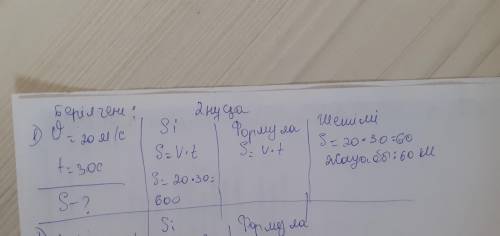 Берілгені: 2 нұсқа
1) ϑ = 20 м/с
t = 30с
S - ?
Si
S = v · t
S = 20 · 30 =
600
Формула
S = v · t
Шешімі
S = 20 · 30 = 60
Жауабы: 60 км
Si Формула